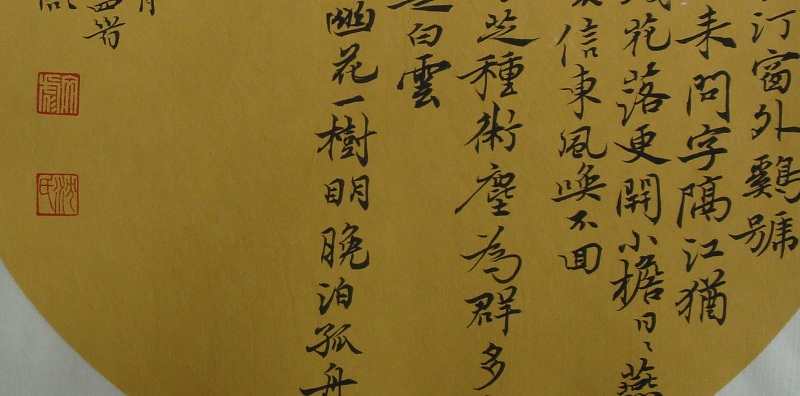 汀窗外鷄號
来問字隔江猶
花落更開小檐日〻燕
信東風喚不回
芝種術塵為群多
白雲
幽花一樹明晚泊孤舟
月